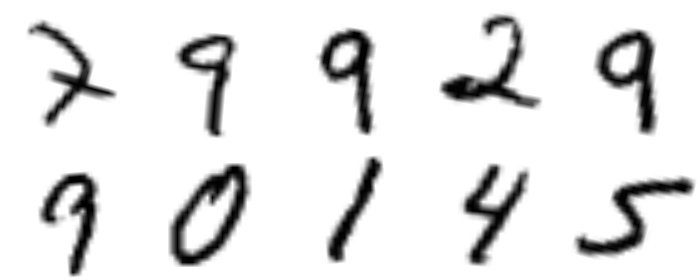 7 9 9 2 9
9 0 1 4 5